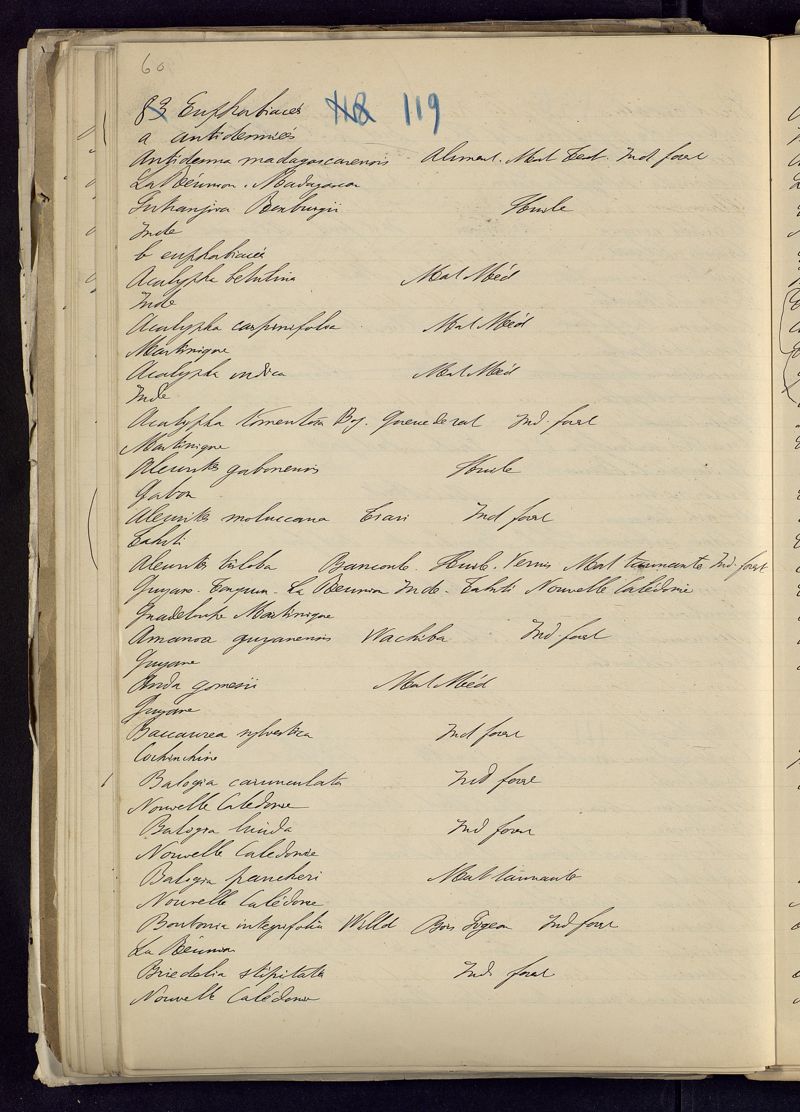 60
83 Euphorbiacés 118 119
a antidesmées
Antidesma madagascarensis Aliment. Mat Tect. Ind forest
La Réunion. Madagascar
Putranjiva Roxburgii Huile
Inde
b euphorbiacés
Acalypha betulina Mat Méd
Inde
Acalypha carpinifolia Mat Méd
Martinique
Acalypha indica Mat Méd
Inde
Acalypha tomentosa Boj. Ind. forest
Martinique
Aleurites gabonensis Huile
Gabon
Aleurites moluccana Tiairi Ind forest
Tahiti
Aleurites triloba Bancoule. Huile. Vernis Mat tannante Ind. forest
Guyane. Tonquin. La Réunion Inde. Tahiti Nouvelle Calédonie
Guadeloupe Martinique
Amanoa guyanensis Wachiba Ind. forest
Guyane
Anda gomesii Mat Méd
Guyane
Baccaurea sylvestica Ind forest
Cochinchine
Balogia carunculata Ind forest
Nouvelle Calédonie
Balogia lucida Ind forest
Nouvelle Calédonie
Balogia pancheri Mat tannante
Nouvelle Calédonie
Boutonia integrifolia Willd Bois Pigeon Ind forest
La Réunion
Briedelia stipitata Ind. forest
Nouvelle Calédonie